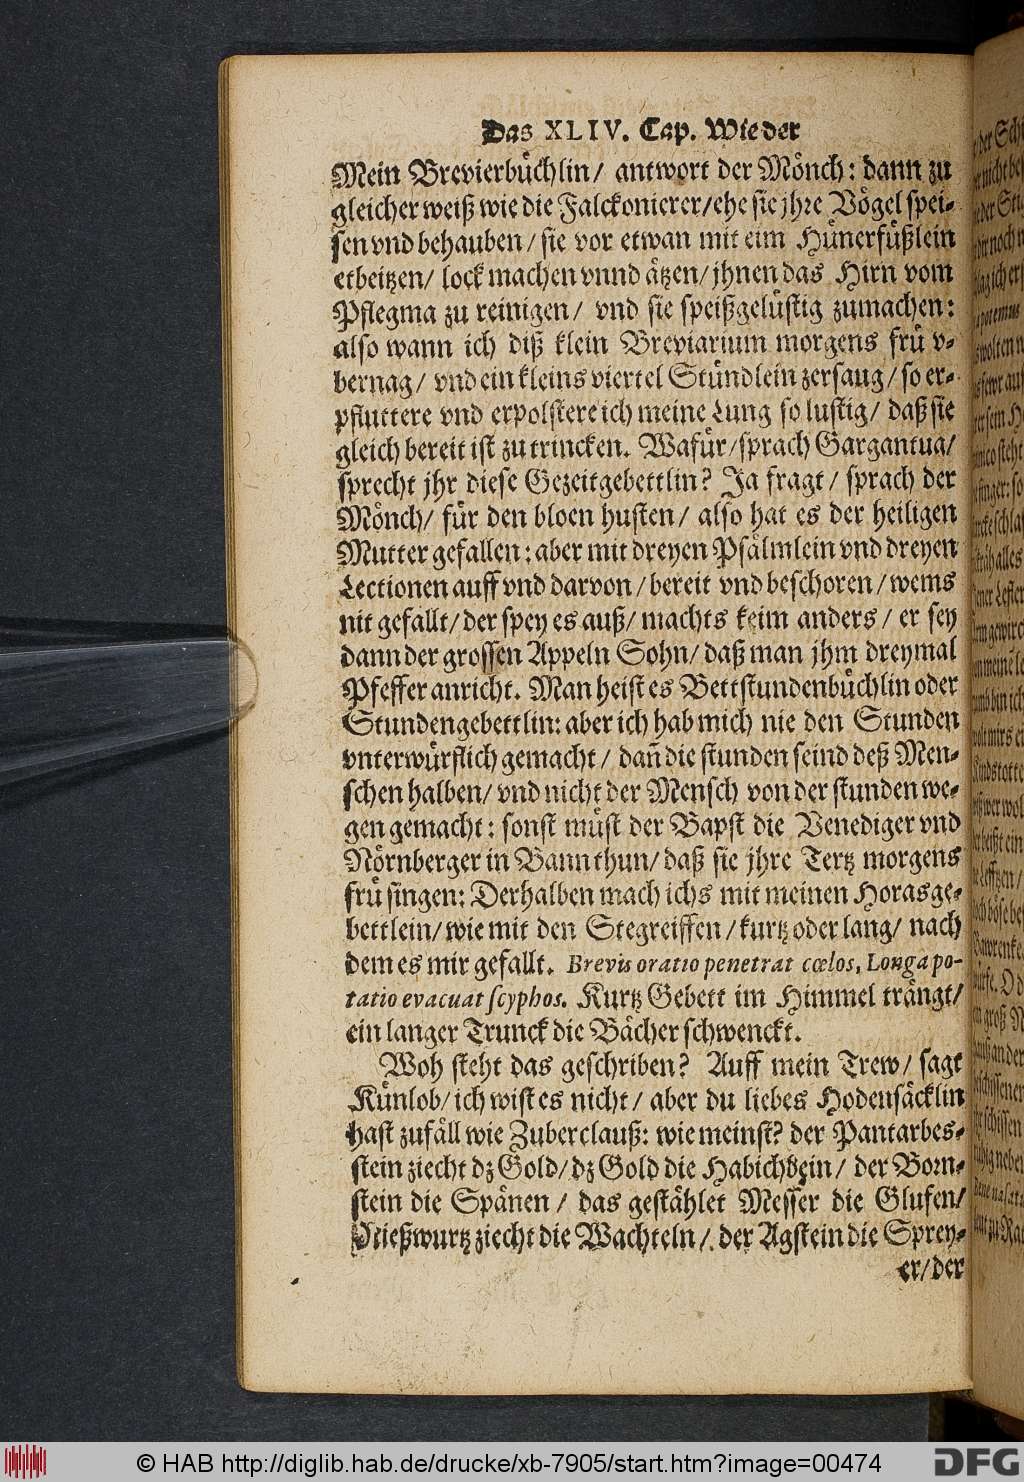 Das XLIV. Cap. Wie der
Mein Brevierbüchlin/ antwort der Mönch: dann zu
gleicher weiß wie die Falckonierer/ehe sie jhre Vögel spei-
sen vnd behauben/ sie vor etwan mit eim Hünerfüßlein
etbeitzen/ lock machen vnnd ätzen/ jhnen das Hirn vom
Pflegma zu reinigen/ vnd sie speißgelüstig zumachen:
also wann ich diß klein Breviarium morgens frü v-
bernag/ vnd ein kleins viertel Stündlein zersaug/ so er-
pfluttere vnd erpolstere ich meine Lung so lustig/ daß sie
gleich bereit ist zu trincken. Wafür/sprach Gargantua/
sprecht jhr diese Gezeitgebettlin? Ja fragt/ sprach der
Mönch/ für den bloen husten/ also hat es der heiligen
Mutter gefallen: aber mit dreyen Psälmlein vnd dreyen
Lectionen auff vnd darvon/ bereit vnd beschoren/ wems
nit gefallt/ der spey es auß/ machts keim anders/ er sey
dann der grossen Appeln Sohn/ daß man jhm dreymal
Pfeffer anricht. Man heist es Bettstundenbüchlin oder
Stundengebettlin: aber ich hab mich nie den Stunden
vnterwürflich gemacht/ dañ die stunden seind deß Men-
schen halben/ vnd nicht der Mensch von der stunden we-
gen gemacht: sonst müst der Bapst die Venediger vnd
Nörnberger in Bann thun/ daß sie jhre Tertz morgens
frü singen: Derhalben mach ichs mit meinen Horasge-
bettlein/ wie mit den Stegreiffen/ kurtz oder lang/ nach
dem es mir gefallt. Brevis oratio penetrat cœlos, Longa po-
tatio evacuat scyphos. Kurtz Gebett im Himmel trängt/
ein langer Trunck die Bächer schwenckt.
Woh steht das geschriben? Auff mein Trew/ sagt
Künlob/ ich wist es nicht/ aber du liebes Hodensäcklin
hast zufäll wie Zuberclauß: wie meinst? der Pantarbes-
stein ziecht dz Gold/ dz Gold die Habichbein/ der Born-
stein die Spänen/ das gestählet Messer die Glufen/
Nießwurtz ziecht die Wachteln/ der Agstein die Sprey-
er/ der
© HAB http://diglib.hab.de/drucke/xb-7905/start.htm?image=00474
DFG